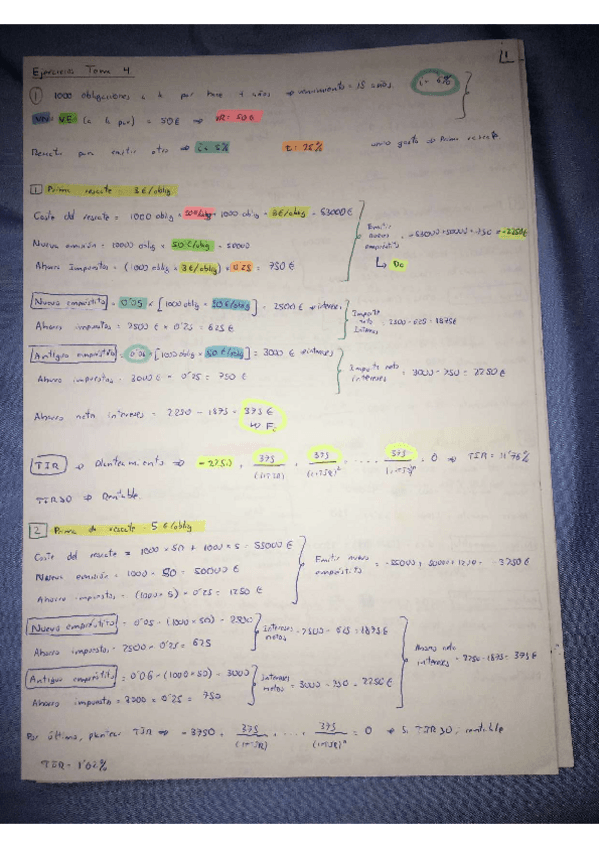 1
Ejercicios Tema 4
① 1000 obligaciones a la par hace 4 años ⇒ vencimiento = 15 años. i = 6%
VN = V.E (a la par) = 50€ ⇒ VR = 50€
Rescata para emitir otro ⇒ i = 5% t = 25% único gasto ⇒ Prima rescate
1 Prima rescate = 3€/oblig
Coste del rescate = 1000 oblig × 50€/oblig + 1000 oblig × 3€/oblig = 53000€
Nueva emisión = 1000 oblig × 50€/oblig = 50000
Ahorro Impuestos = (1000 oblig × 3€/oblig) × 0'25 = 750€
Emitir nuevo empréstito = -53000 + 50000 + 750 = -2250€
↳ D0
Nuevo empréstito = 0'05 × [1000 oblig × 50€/oblig] = 2500€ intereses
Ahorro impuestos = 2500 × 0'25 = 625€
Importe neto Intereses = 2500 - 625 = 1875€
Antiguo empréstito = 0'06 × [1000 oblig × 50€/oblig] = 3000€ intereses
Ahorro impuestos = 3000 × 0'25 = 750€
Importe neto intereses = 3000 - 750 = 2250€
Ahorro neto intereses = 2250 - 1875 = 375€
TIR ⇒ planteamiento ⇒ -2250 + 375/(1+TIR) + 375/(1+TIR)² + ... + 375/(1+TIR)ⁿ = 0 ⇒ TIR = 11'76%
TIR>0 ⇒ Rentable.
2 Prima de rescate = 5€/oblig
Coste del rescate = 1000 × 50 + 1000 × 5 = 55000€
Nueva emisión = 1000 × 50 = 50000€
Ahorro impuestos = (1000 × 5) × 0'25 = 1250€
Emitir nuevo empréstito = -55000 + 50000 + 1250 = -3750€
Nuevo empréstito = 0'05 × (1000 × 50) = 2500
Ahorro impuestos = 2500 × 0'25 = 625
Intereses netos = 2500 - 625 = 1875€
Antiguo empréstito = 0'06 × (1000 × 50) = 3000
Ahorro impuestos = 3000 × 0'25 = 750
Intereses netos = 3000 - 750 = 2250€
Ahorro neto intereses = 2250 - 1875 = 375€
Por último, plantear TIR ⇒ -3750 + 375/(1+TIR) + ... + 375/(1+TIR)ⁿ = 0 ⇒ Si TIR>0; rentable
TIR = 1'62%